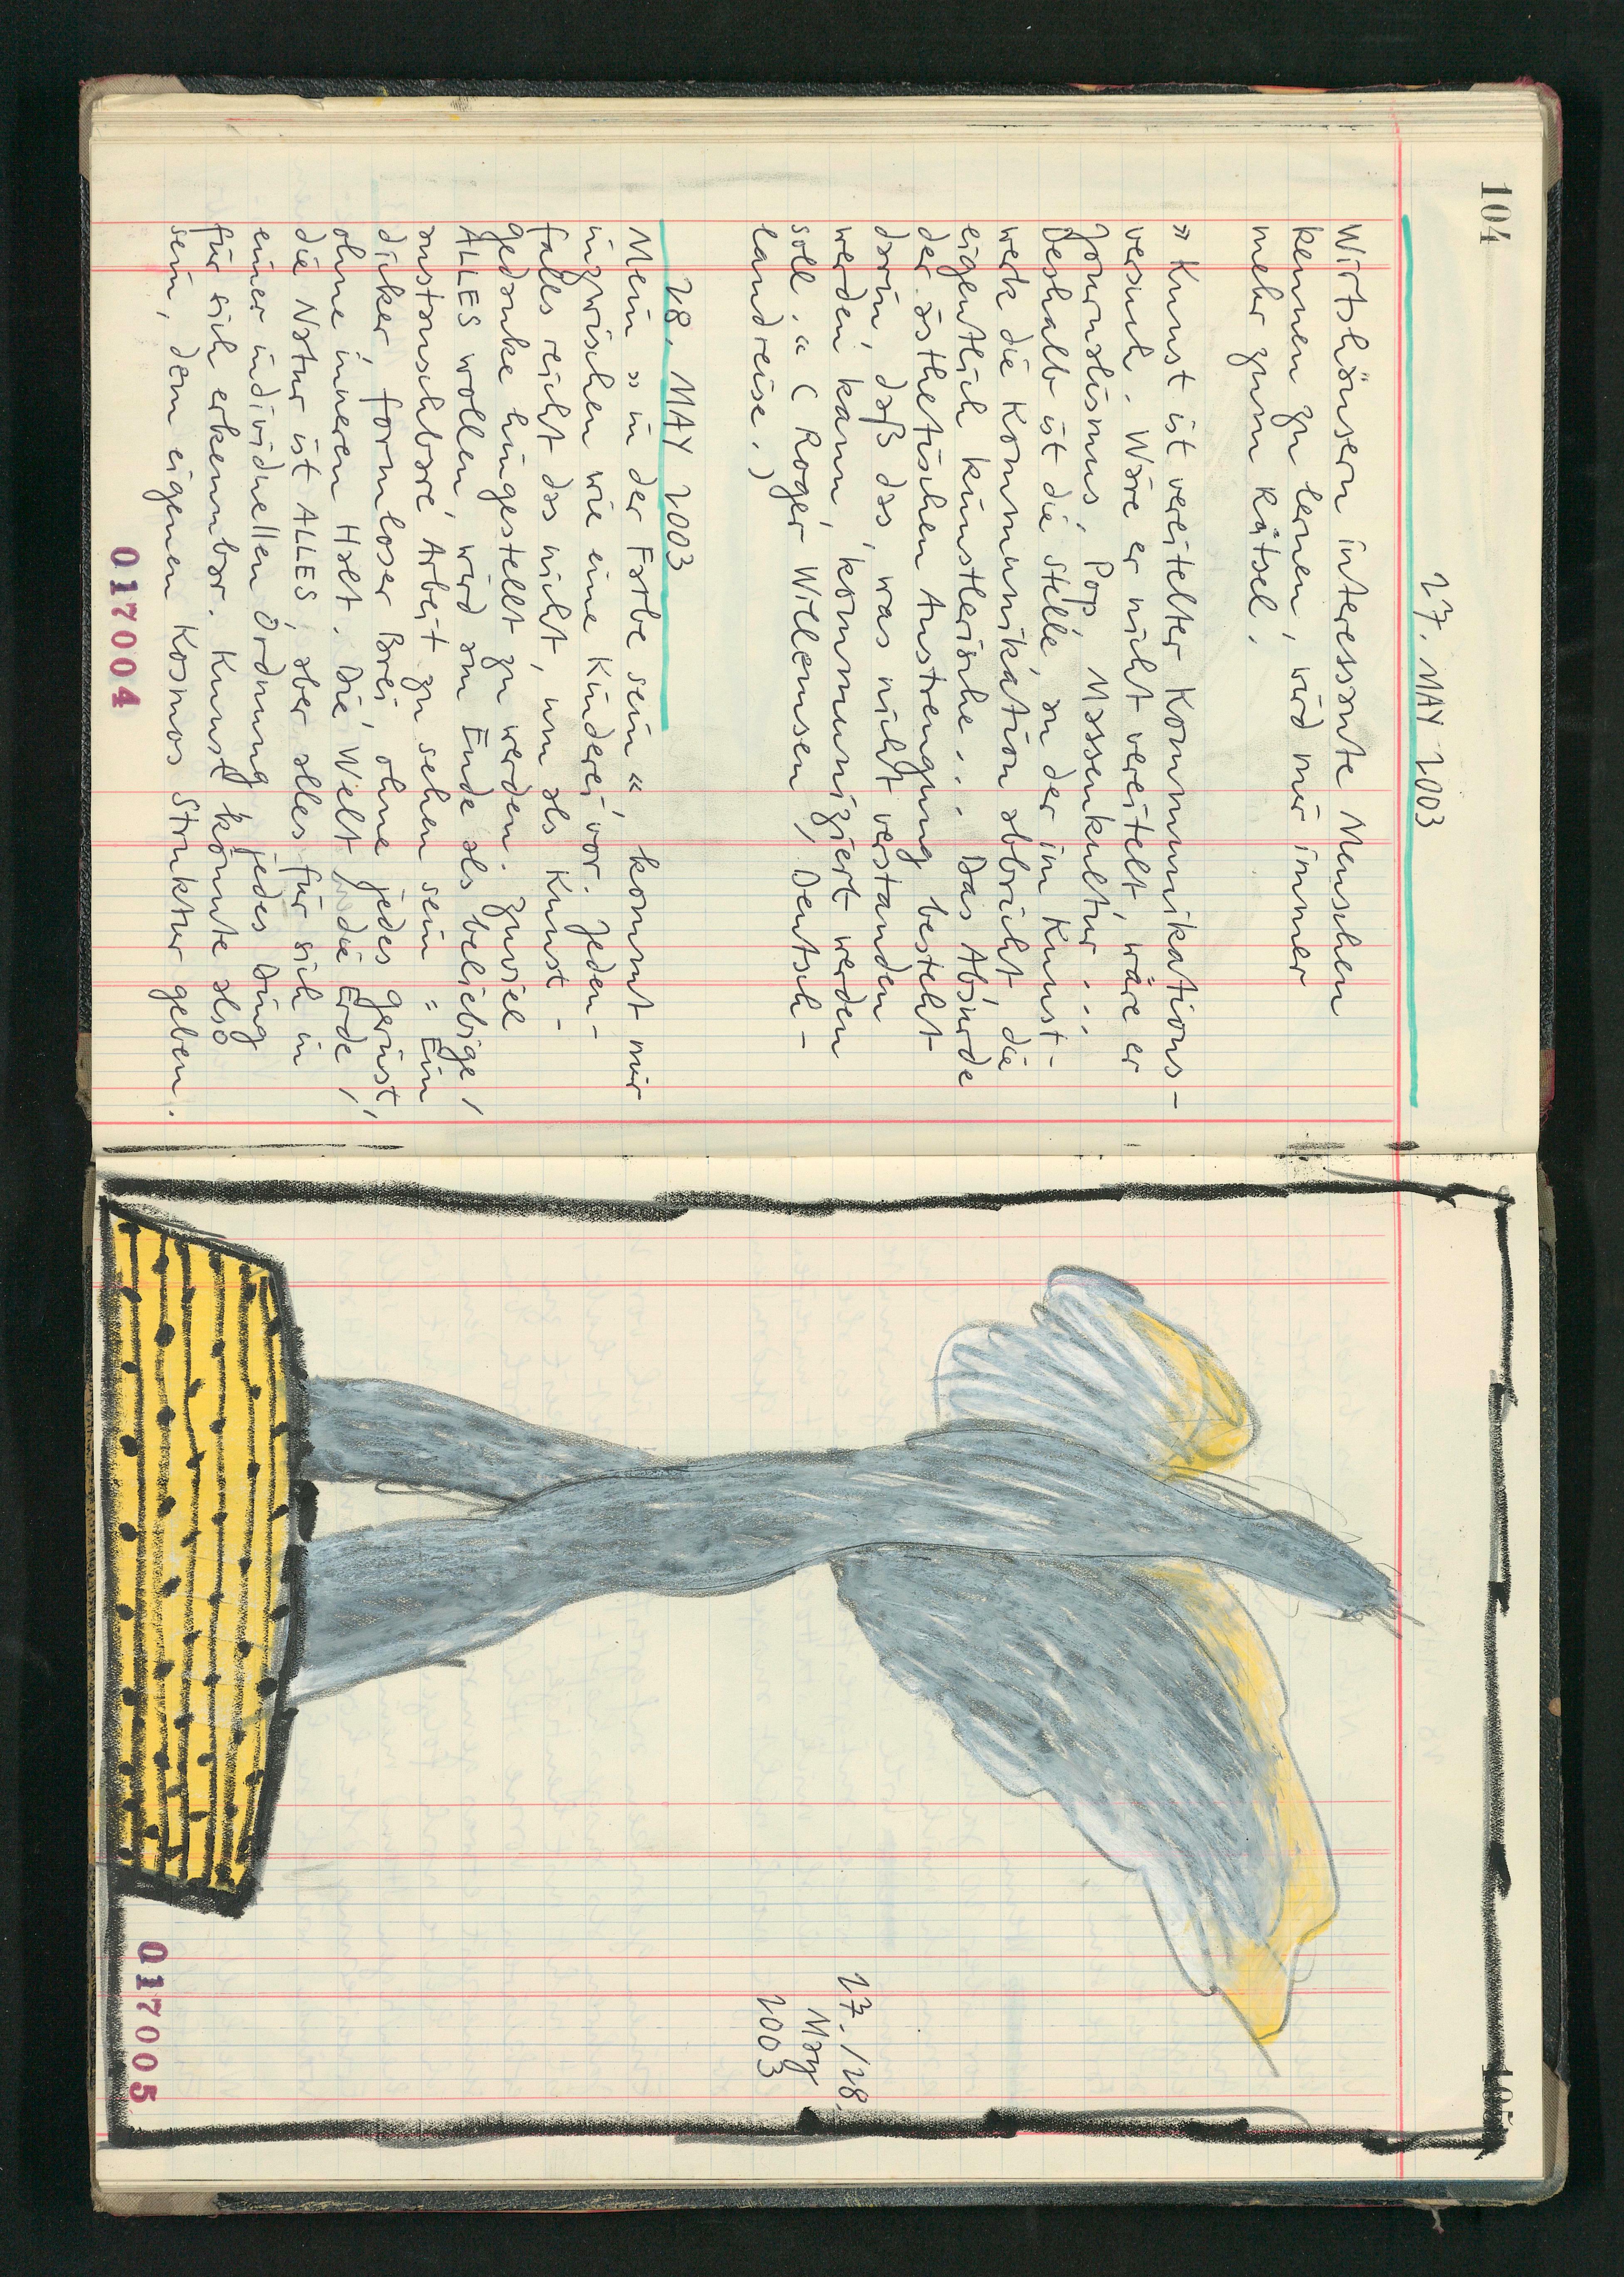 104
27. MAY 2003
Wirtshäusern interessante Menschen
kennen zu lernen, wird mir immer
mehr zum Rätsel.
» Kunst ist vereitelter Kommunikations-
versuch. Wäre er nicht vereitelt, wäre er
Journalismus, Pop, Massenkultur...
Deshalb ist die Stelle, an der im Kunst-
werk die Kommunikation abbricht die
eigentlich künstlerische... Das Absurde
der ästhetischen Anstrengung besteht
darin, daß das, was nicht verstanden
werden kann, kommuniziert werden
soll. « (Roger Willemsen, Deutsch-
landreise.)
28. MAY 2003
Mein » in der Farbe sein «, kommt mir
inzwischen wie eine Kinderei vor. Jeden-
falls reicht das nicht, um als Kunst-
gedanke hingestellt zu werden. Zuviel
ALLES wollen, wird am Ende als beliebige,
austauschbare Arbeit zu sehen sein = Ein
dicker, formloser Brei, ohne jedes Gerüst,
ohne inneren Halt. Die Welt, die Erde,
die Natur ist ALLES, aber alles für sich in
einer individuellen Ordnung, jedes Ding
für sich erkennbar. Kunst könnte also
sein, dem eigenen Kosmos Struktur geben.
017004
105
27./28.
May
2003
017005